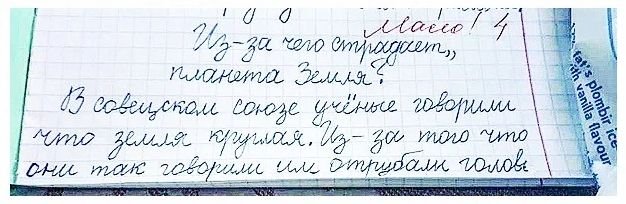 Мало! 4
Из-за чего страдает,,
планета Земля?
В совецском союзе учёные говорили
что земля круглая. Из-за того что
они так говорили им отрубали голове
fat's plombir ice
with vanilla flavour